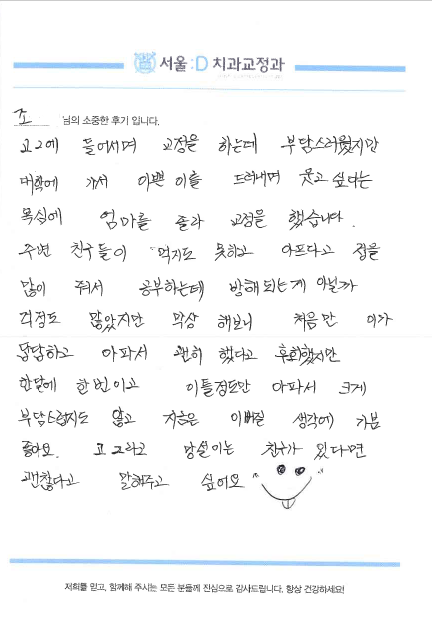 서울:D 치과교정과
조 님의 소중한 후기 입니다.
고2에 들어서며 교정을 하는데 부담스러웠지만
대학에 가서 이쁜 이를 드러내며 웃고 싶다는
욕심에 엄마를 졸라 교정을 했습니다.
주변 친구들이 먹지도 못하고 아프다고 겁을
많이 줘서 공부하는데 방해되는게 아닐까
걱정도 많았지만 막상 해보니 처음만 이가
답답하고 아파서 괜히 했다고 후회했지만
한달에 한번이고 이틀정도만 아파서 크게
부담스럽지도 않고 지금은 이뻐질 생각에 기분
좋아요. 고2라고 망설이는 친구가 있다면
괜찮다고 말해주고 싶어요
저희를 믿고, 함께해 주시는 모든 분들께 진심으로 감사드립니다. 항상 건강하세요!